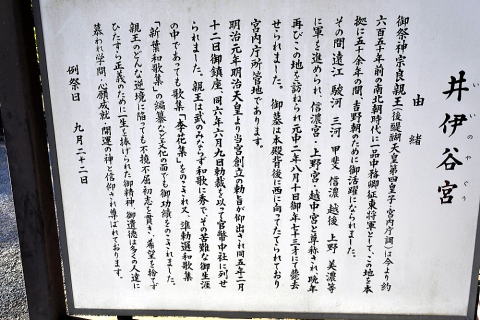 井伊谷宮
いいのやぐう
由緒
御祭神宗良親王(後醍醐天皇第四皇子・宮内庁調べ)は今より約
六百五十年前の南北朝時代に一品中務卿征東将軍として、この地を本
拠に五十余年の間、吉野朝のために御活躍になられました。
その間遠江 駿河 三河 甲斐 信濃 越後 上野 美濃等
に軍を進められ、信濃宮・上野宮・越中宮と尊称され、晩年
再びこの地を訪ねられ元中二年八月十日御年七十三才にて薨去
せられました。御墓は本殿背後に西に向ってたてられており
宮内庁所管地であります。
明治元年明治天皇より当宮創立の勅旨が仰出され同五年二月
十二日御鎮座、同六年六月九日勅裁を以って官幣中社に列せ
られました。親王は武のみならず和歌に秀で、その苦難な御生涯
の中であっても歌集「李花集」をのこされ又、准勅選和歌集
「新葉和歌集」の編纂など文化の面でも御功績をのこされました。
親王のどんな逆境に陥っても不撓不屈初志を貫き、希望を捨てず
ひたすら正義のために一生を捧げられた御精神、御遺徳は多くの人達に
慕われ学問・心願成就・開運の神と信仰され尊ばれております。
例祭日 九月二十二日